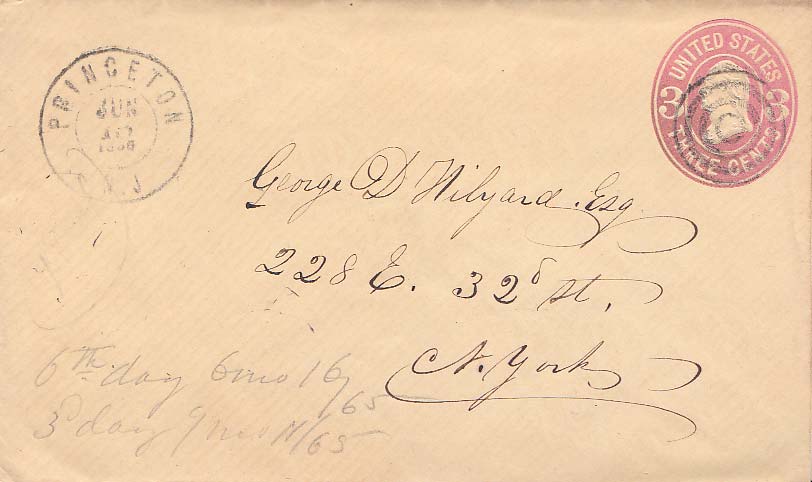 PRINCETON
JUN
N.J.
UNITED STATES
3 3
THREE CENTS
George D Hilyard. Esq
228 E. 32d st.
N. York
6th day 6 mo 16/65
3d day 9 mo /65